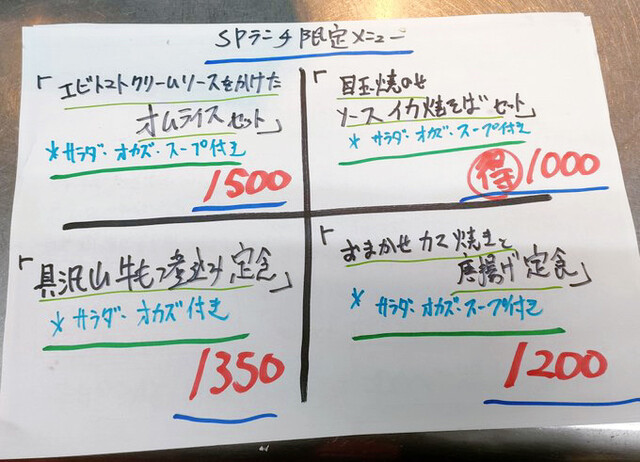 SPランチ限定メニュー
「エビトマトクリームソースをかけた
オムライスセット」
*サラダ・オカズ・スープ付き
1500
「目玉焼のせ
ソースイカ焼そばセット」
*サラダ・オカズ・スープ付き
得 1000
「具沢山牛もつ煮込み定食」
*サラダ・オカズ付き
1350
「おまかせカス焼きと
唐揚げ定食」
*サラダ・オカズ・スープ付き
1200